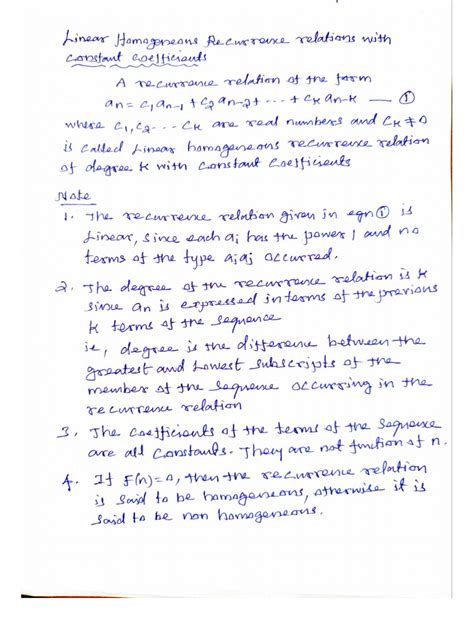 Linear Homogeneous Recurrence relations with
Constant Coefficients
A recurrence relation of the form
an = c₁an-1 + c₂an-2 + ... + cₖan-k — ①
where c₁, c₂ ... cₖ are real numbers and cₖ ≠ 0
is called Linear homogeneous recurrence relation
of degree k with constant coefficients
Note
1. The recurrence relation given in eqn ① is
Linear, since each ai has the power 1 and no
terms of the type aiaj occurred.
2. The degree of the recurrence relation is k
since an is expressed in terms of the previous
k terms of the sequence
ie, degree is the difference between the
greatest and Lowest subscripts of the
member of the sequence occurring in the
recurrence relation
3. The coefficients of the terms of the sequence
are all constants. They are not function of n.
4. If F(n)=0, then the recurrence relation
is said to be homogeneous, otherwise it is
said to be non homogeneous.